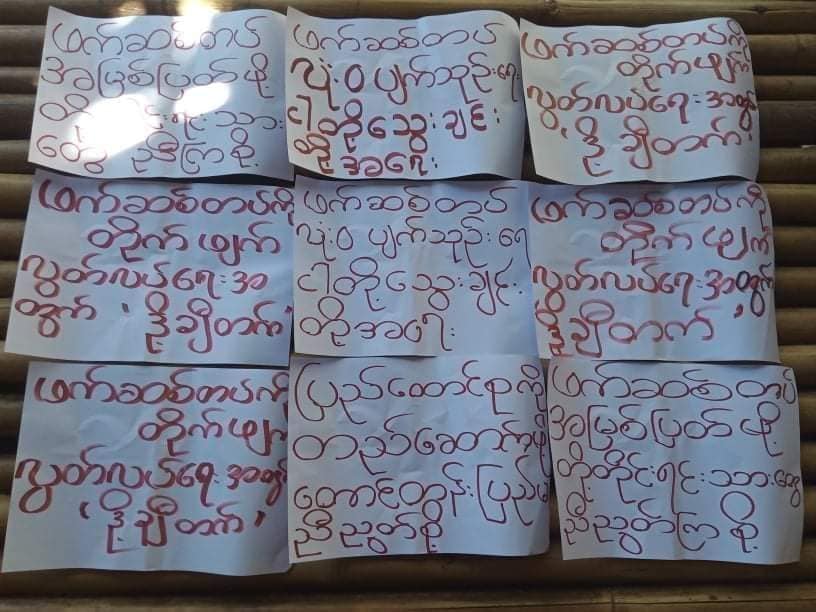 ဖက်ဆစ်တပ်
အမြစ်ပြတ်ဖို့
တို့တိုင်းရင်းသား
တွေ ညီကြစို့
ဖက်ဆစ်တပ်
လုံးဝ ပျက်သုဉ်းရေး
ငါတို့သွေးချင်း
တို့အရေး
ဖက်ဆစ်တပ်ကို
တိုက်ဖျက်
လွတ်လပ်ရေးအတွက်
'ဒို့ချီတက်'
ဖက်ဆစ်တပ်ကို
တိုက်ဖျက်
လွတ်လပ်ရေးအ
တွက် 'ဒို့ချီတက်'
ဖက်ဆစ်တပ်
လုံးဝ ပျက်သုဉ်းရေ
ငါတို့သွေးချင်း
တို့အရေး
ဖက်ဆစ်တပ်ကို
တိုက်ဖျက်
လွတ်လပ်ရေးအတွက်
'ဒို့ချီတက်'
ဖက်ဆစ်တပ်ကို
တိုက်ဖျက်
လွတ်လပ်ရေးအတွက်
'ဒို့ချီတက်'
ပြည်ထောင်စုကို
တည်ဆောက်ဖို့
တောင်တန်းပြည်မ
ညီညွတ်စို့
ဖက်ဆစ်တပ်
အမြစ်ပြတ်ဖို့
တို့တိုင်းရင်းသားတွေ
ညီညွတ်ကြစို့